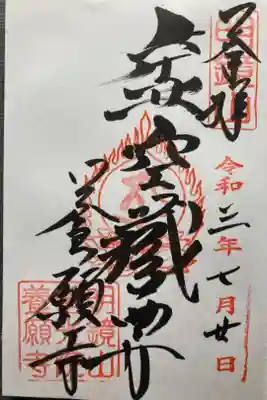 奉拝
令和三年七月廿日
虚空藏菩薩
養願寺
明鏡山
養願寺